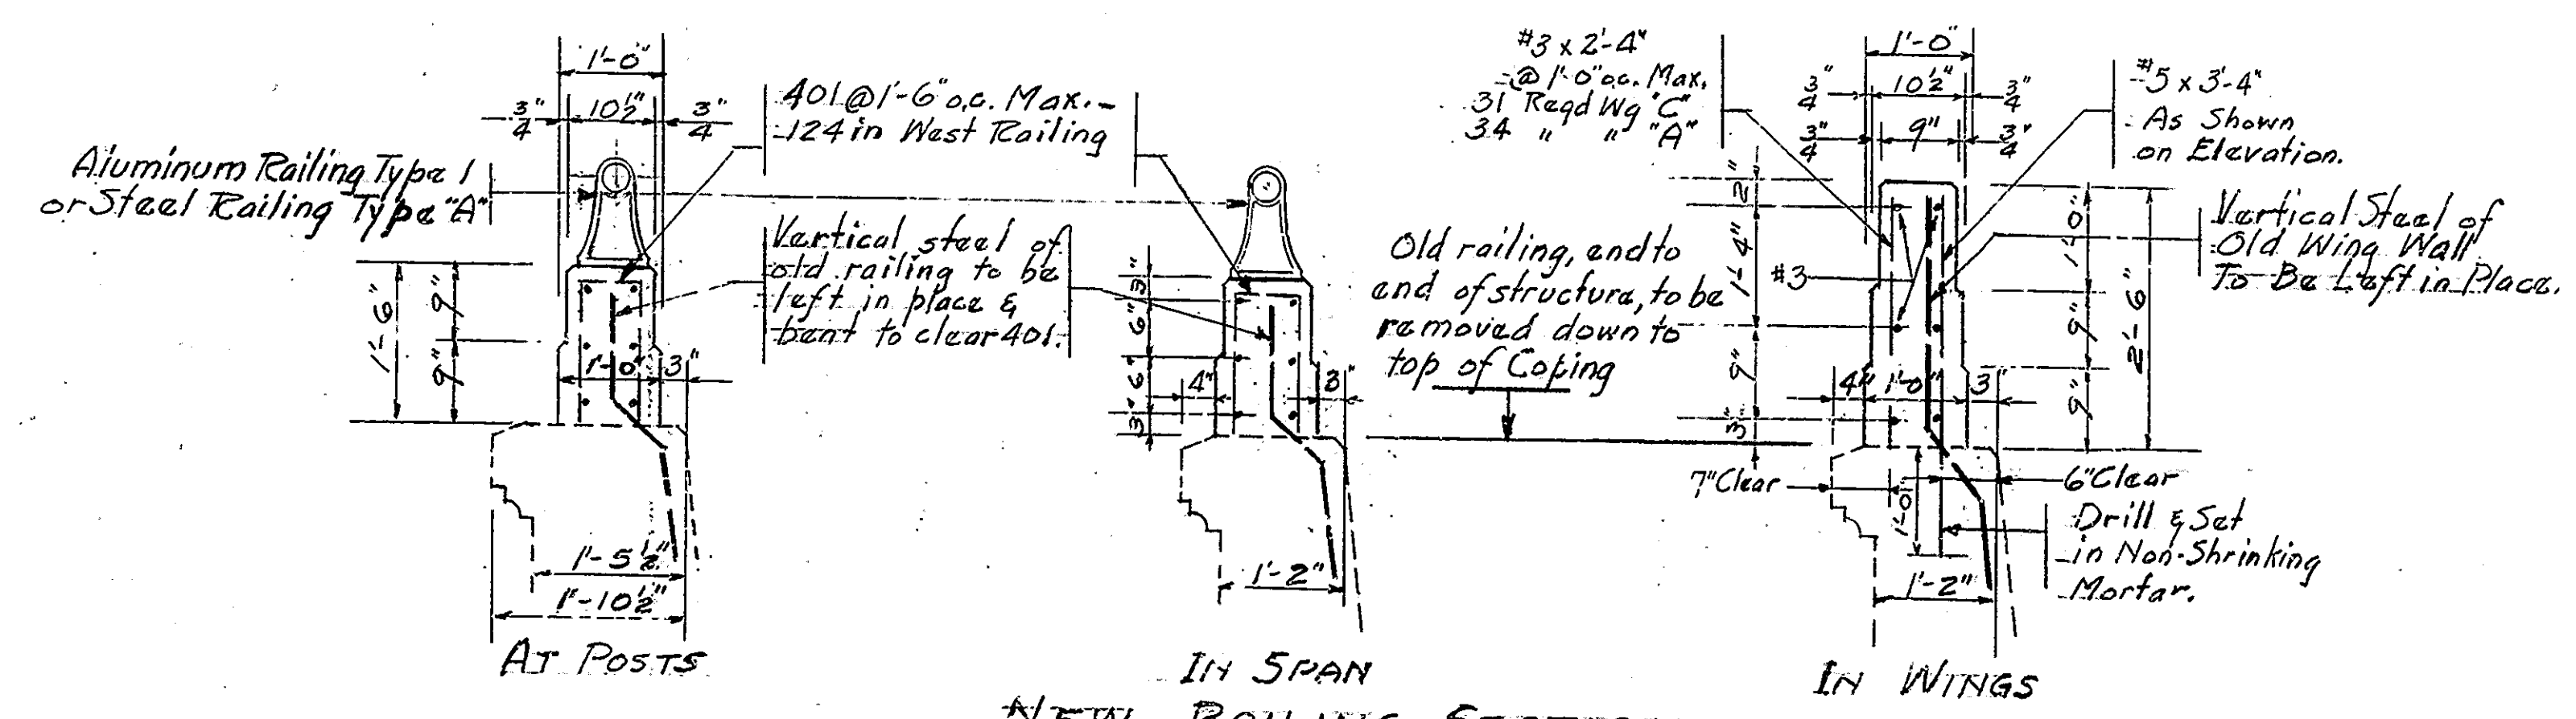 1'-0"
3/4" 10 1/2" 3/4"
Aluminum Railing Type 1
or Steel Railing Type "A"
401 @ 1'-6" o.c. Max. -
124 in West Railing
Vertical steel of
old railing to be
left in place &
bent to clear 401.
1'-6"
9"
9"
1'-0" 3"
1'-5 1/2"
1'-10 1/2"
AT POSTS
3"
6"
6"
3"
4" 3"
1'-2"
IN SPAN
Old railing, end to
end of structure, to be
removed down to
top of Coping
#3 x 2'-4"
@ 1'-0" o.c. Max.
31 Reqd Wg "C"
34 " " "A"
1'-0"
3/4" 10 1/2" 3/4"
3/4" 9" 3/4"
#5 x 3'-4"
As Shown
on Elevation.
Vertical Steel of
Old Wing Wall
To Be Left in Place.
2"
1'-4"
#3
9"
3"
1'-0"
9"
9"
2'-6"
4" 1'-0" 3"
7" Clear
6" Clear
1'-0"
Drill & Set
in Non-Shrinking
Mortar.
1'-2"
IN WINGS
NEW